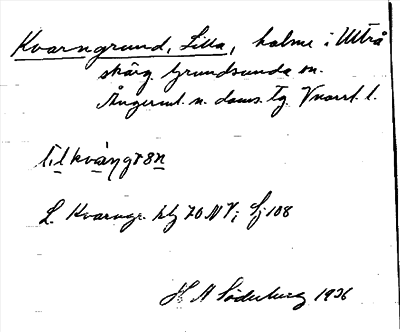 Kvarngrund, Lilla, holme i Utvå
skärg. Grundsunda sn.
Ångerml. n. doms. Tg. Vnorrl. l.
L. Kvarngr. blg 70 NV; Sj 108
H N Söderberg 1936